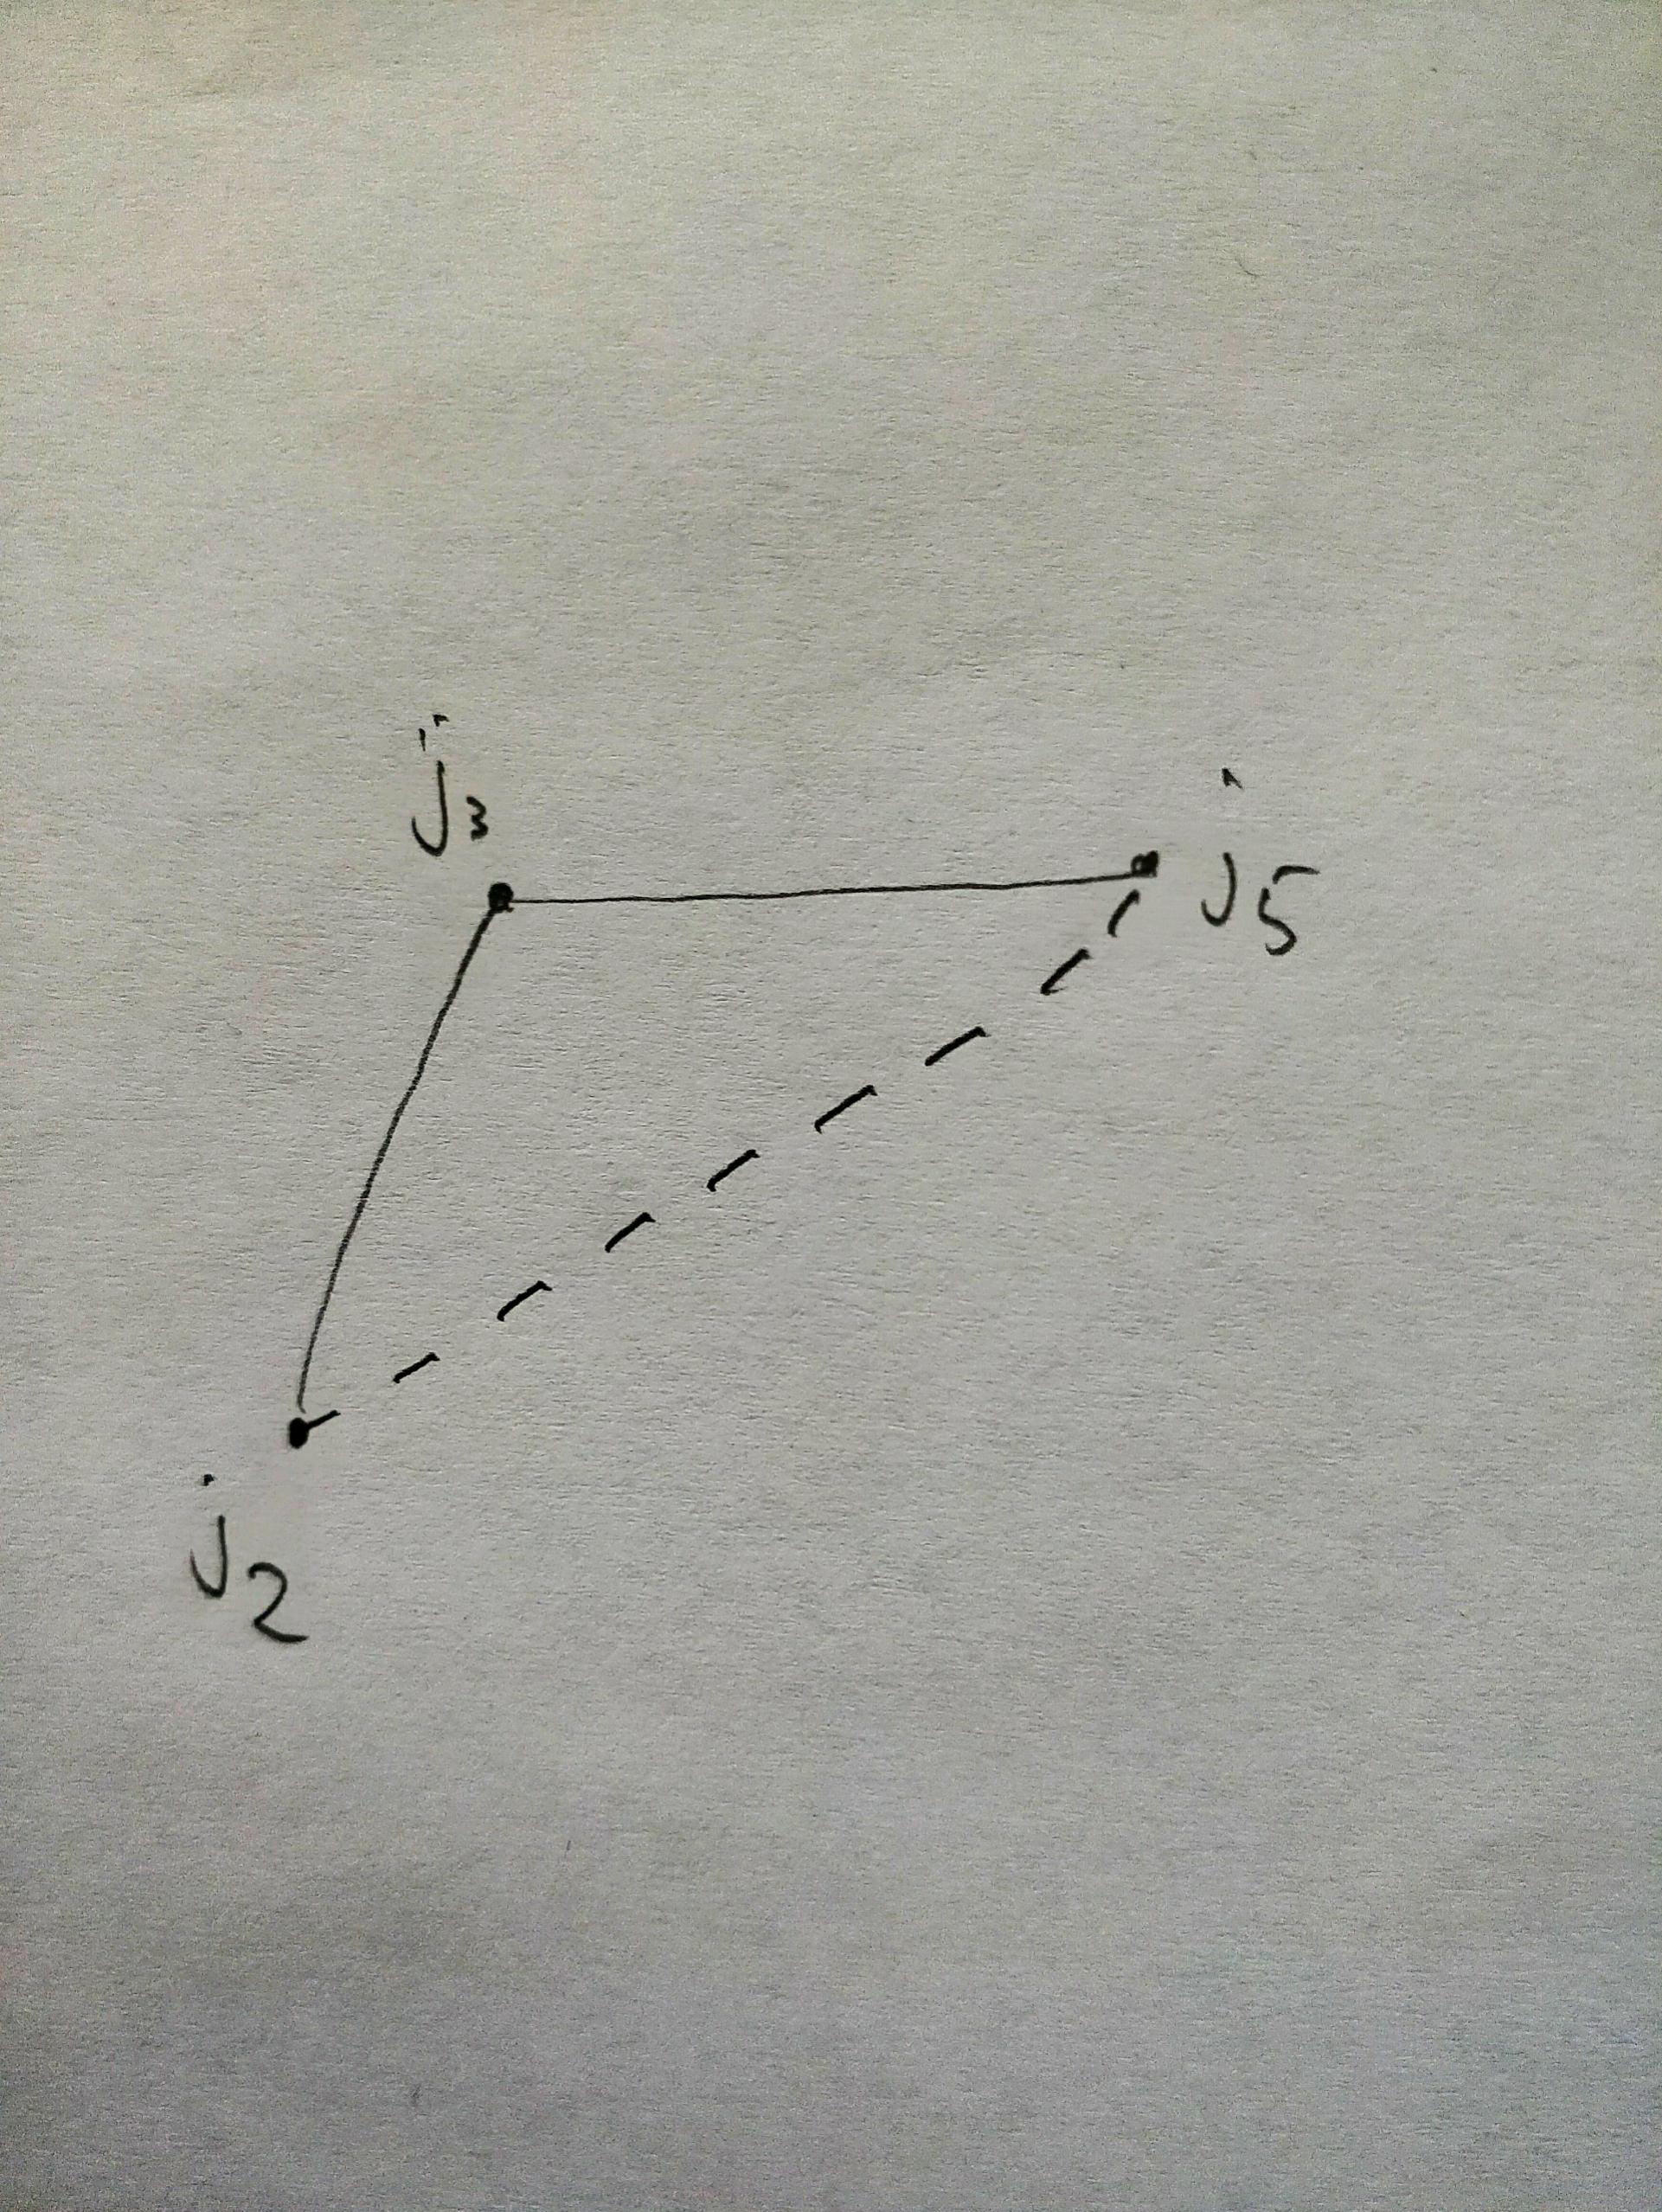 j3
j5
j2